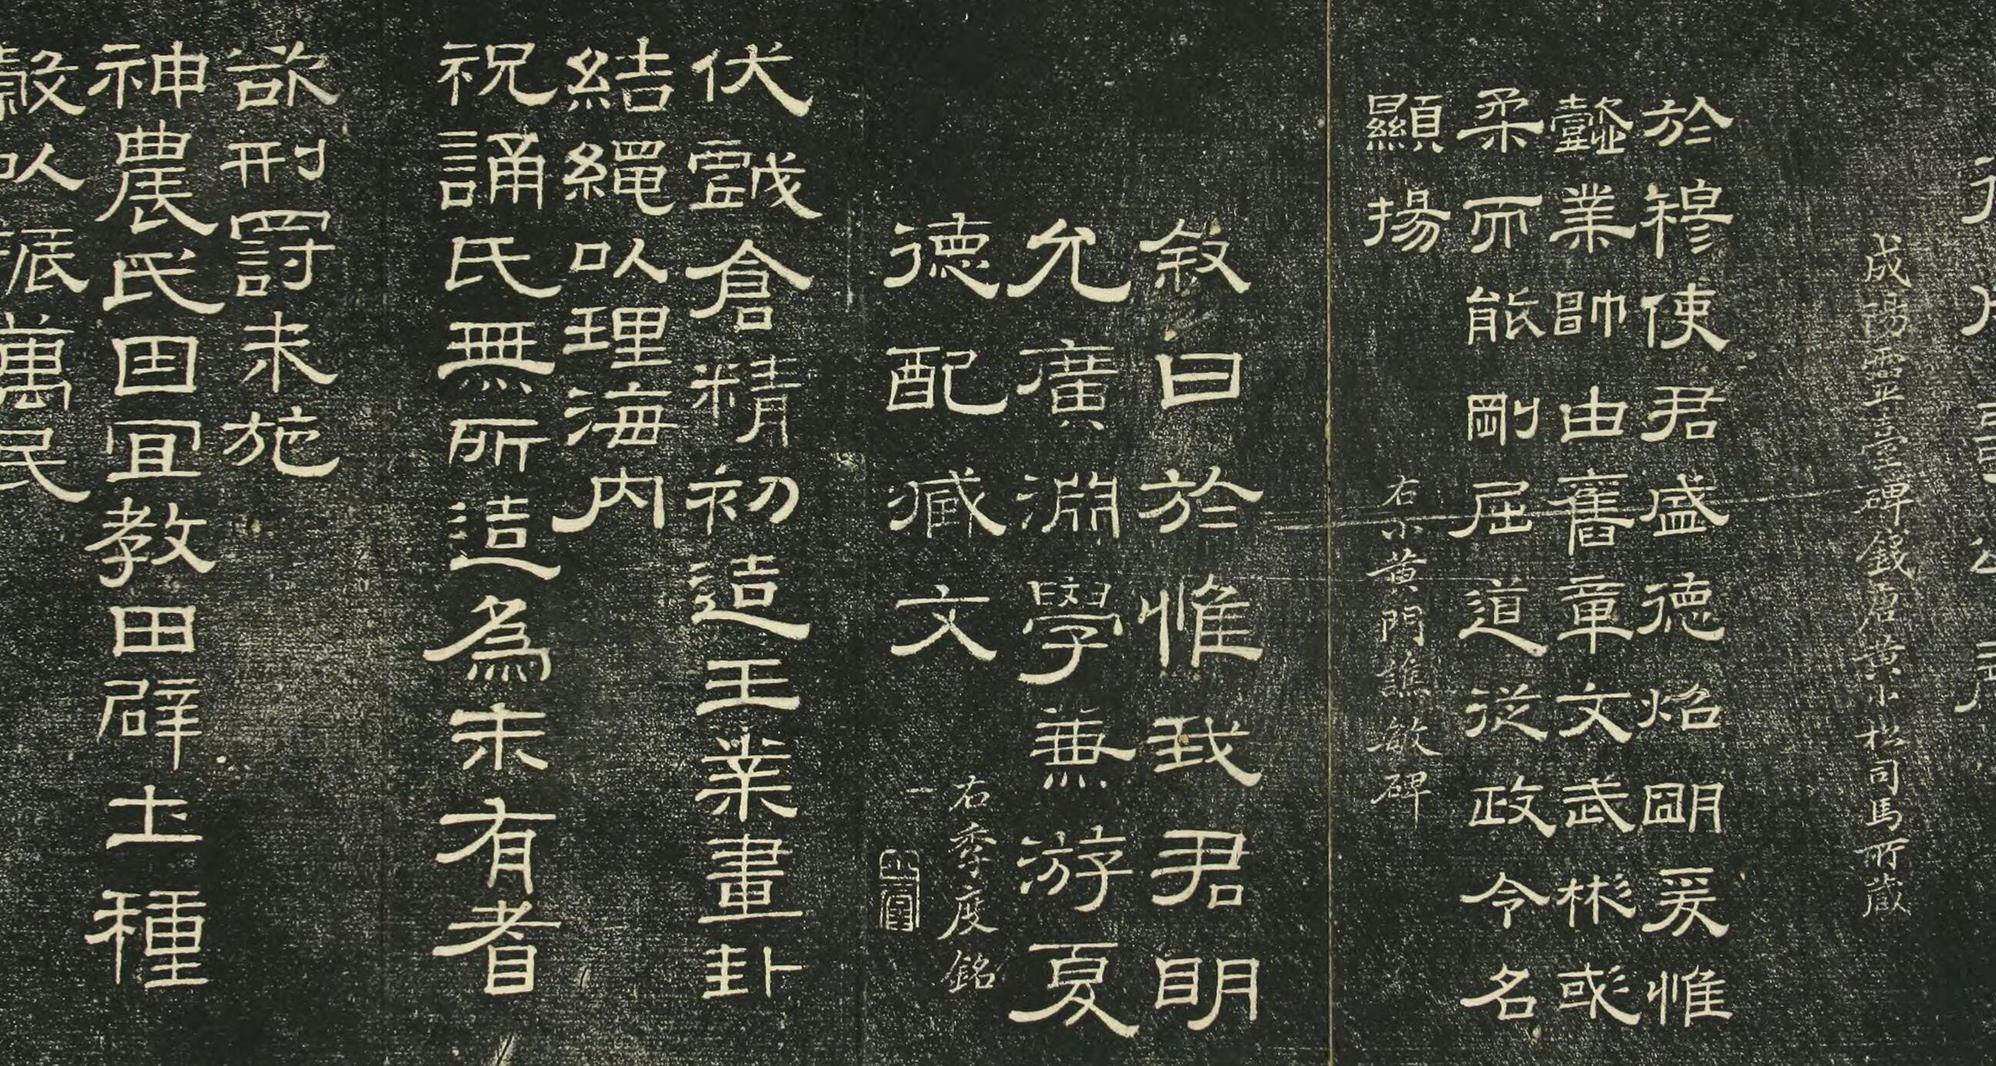 成陽靈臺碑錢唐黃小松司馬所藏
於穆使君盛德焰朙爰惟
懿業帥由舊章文武彬彧
柔而能剛屈道從政令名
顯揚
右小黃門譙敏碑
敘曰於惟我君眀
允廣淵學兼游夏
德配臧文
右季度銘
伏戲倉精初造王業畫卦
結繩以理海内
祝誦氏無所造為未有耆
欲刑罰未施
神農氏因宜教田辟土種
穀以振萬民